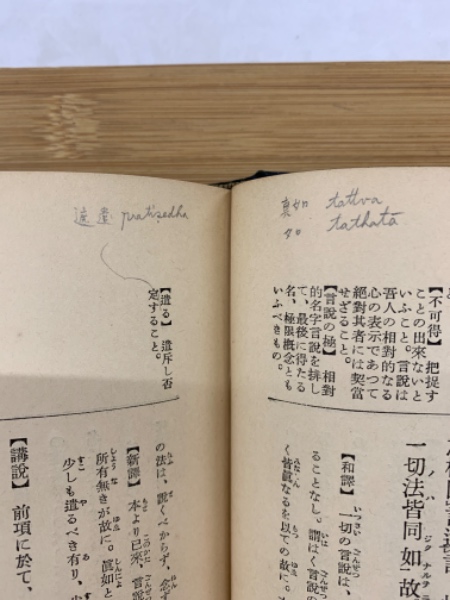 真如 tattva
如 tathatā
【不可得】 把捉す
ことの出來ないと
いふこと。言說は
吾人の相對的なる
心の表示であつて
絕對其者には契當
せざること。
【言說の極】 相對
的名字言說を排し
て、最後に得たる
名、極限概念とも
いふべきもの。
一切法皆同如故
【和譯】 一切の言說は、
ることなし。謂はく言說の
く皆眞なるを以ての故に。
遮遣 pratiṣedha
【遣る】 遣斥し否
定すること。
の法は、說くべからず、念す
【新譯】 本より已來、言說
所有無きが故に。眞如と
少しも遣るべき有り、少
【講說】 前項に於て、